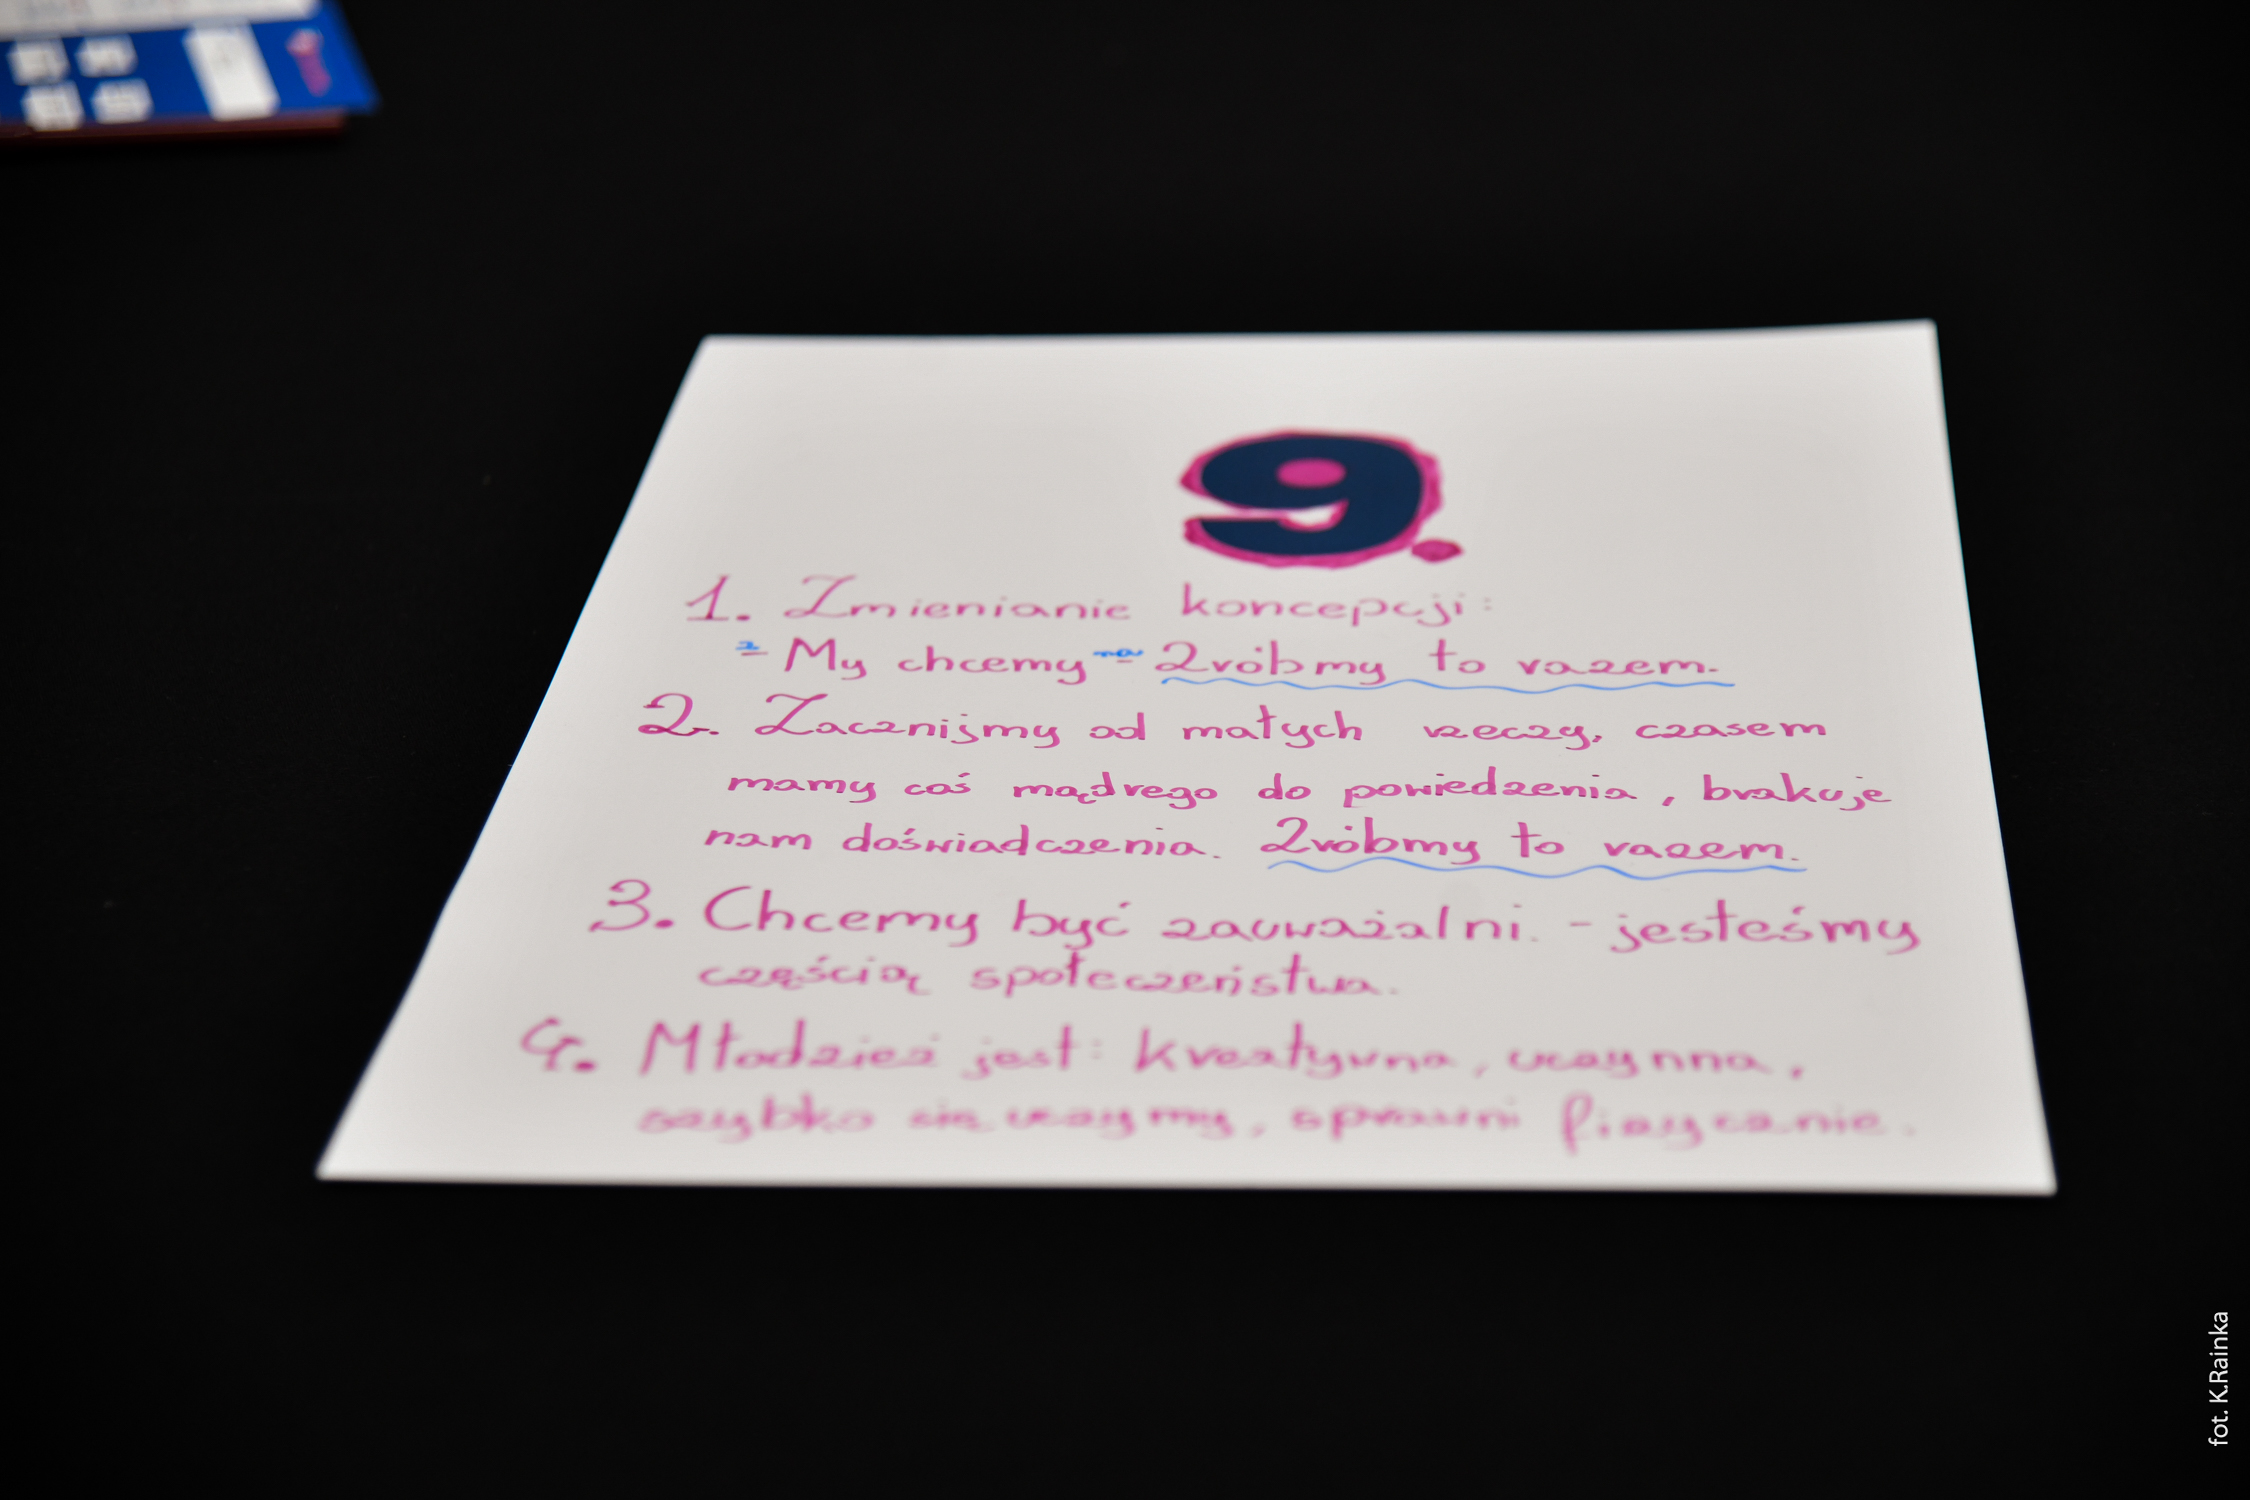 9.
1. Zmienianie koncepcji:
z - My chcemy na - Zróbmy to razem.
2. Zacznijmy od małych rzeczy, czasem
mamy coś mądrego do powiedzenia, brakuje
nam doświadczenia. Zróbmy to razem.
3. Chcemy być zauważalni. - jesteśmy
częścią społeczeństwa.
4. Młodzież jest: kreatywna, uczynna,
szybko się uczymy, sprawni fizycznie.
fot. K.Rainka